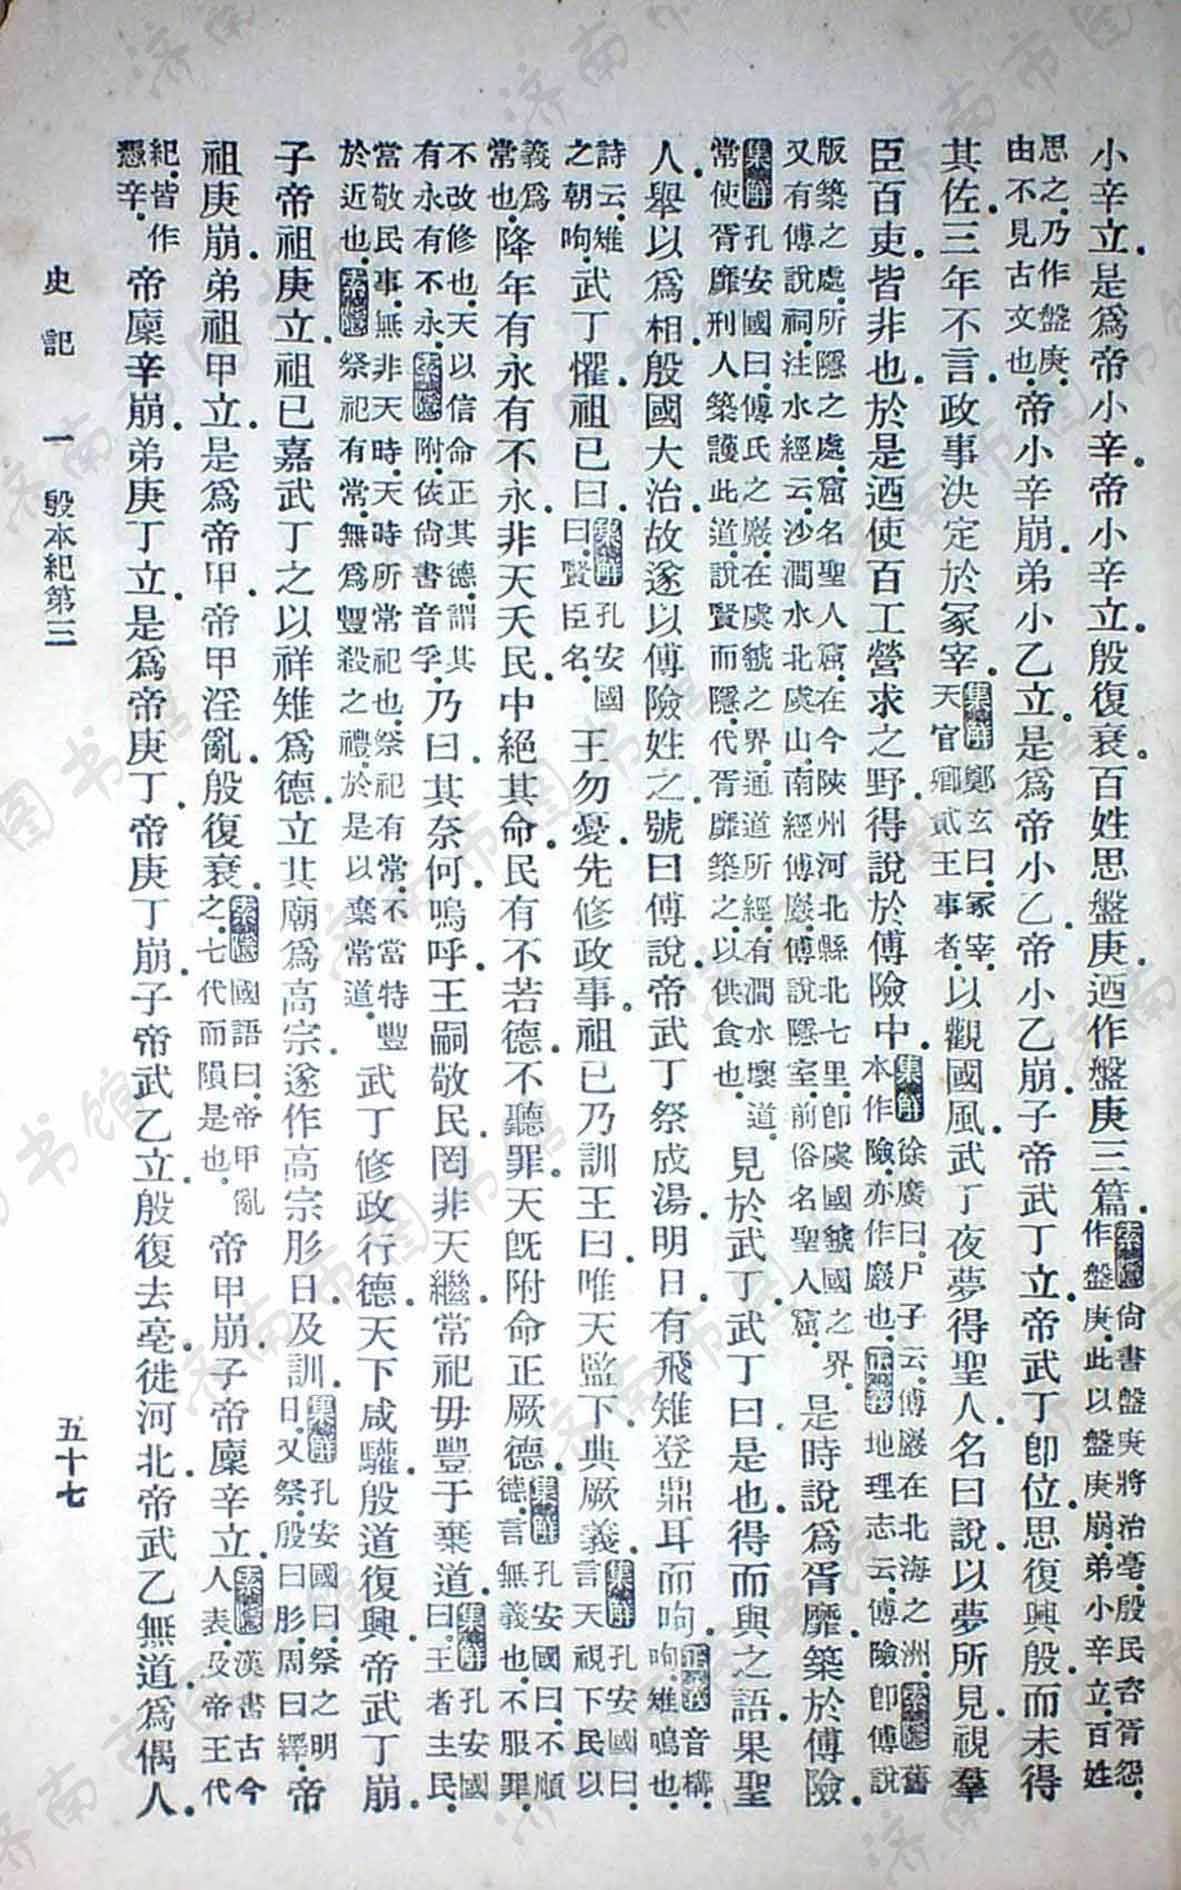 小辛立。是爲帝小辛。帝小辛立。殷復衰。百姓思盤庚。迺作盤庚三篇。【索隱】尙書盤庚將治亳。殷民咨胥怨。作盤庚。此以盤庚崩。弟小辛立。百姓
思之。乃作盤庚。由不見古文也。帝小辛崩。弟小乙立。是爲帝小乙。帝小乙崩。子帝武丁立。帝武丁卽位。思復興殷。而未得
其佐。三年不言。政事決定於冢宰。【集解】鄭玄曰。冢宰。天官卿貳王事者。以觀國風。武丁夜夢得聖人。名曰說。以夢所見。視羣
臣百吏。皆非也。於是迺使百工營求之野。得說於傅險中。【集解】徐廣曰。尸子云。傅巖在北海之洲。【索隱】舊本作險。亦作巖也。【正義】地理志云。傅險卽傅說
版築之處。所隱之處。窟名聖人窟。在今陝州河北縣北七里。卽虞國虢國之界。又有傅說祠。注水經云。沙澗水北虞山。南經傅巖。傅說隱室。前俗名聖人窟。是時說爲胥靡。築於傅險。
【集解】孔安國曰。傅氏之巖。在虞虢之界。通道所經。有澗水壞道。常使胥靡刑人築護此道。說賢而隱。代胥靡築之。以供食也。見於武丁。武丁曰。是也。得而與之語。果聖
人。舉以爲相。殷國大治。故遂以傅險姓之。號曰傅說。帝武丁祭成湯。明日。有飛雉登鼎耳而呴。【正義】音構。呴。雉鳴也。
詩云。雉之朝呴。武丁懼。祖己曰。【集解】孔安國曰。賢臣名。王勿憂。先修政事。祖己乃訓王曰。唯天監下。典厥義。【集解】孔安國曰。言天視下民。以
義爲常也。降年有永有不永。非天夭民。中絕其命。民有不若德。不聽罪。天旣附命正厥德。【集解】孔安國曰。不順德。言無義也。不服罪。
不改修也。天以信命正其德。謂其有永有不永。【索隱】附。依尙書音孚。乃曰。其奈何。嗚呼。王嗣敬民。罔非天繼。常祀毋豐于棄道。【集解】孔安國曰。王者主民。
當敬民事。民事無非天時。天時所常祀也。祭祀有常。不當特豐於近也。【索隱】祭祀有常。無爲豐殺之禮。於是以棄常道。武丁修政行德。天下咸驩。殷道復興。帝武丁崩。
子帝祖庚立。祖己嘉武丁之以祥雉爲德。立其廟爲高宗。遂作高宗肜日及訓。【集解】孔安國曰。祭之明日。又祭。殷曰肜。周曰繹。帝
祖庚崩。弟祖甲立。是爲帝甲。帝甲淫亂。殷復衰。【索隱】國語曰。帝甲亂之。七代而隕是也。帝甲崩。子帝廩辛立。【索隱】漢書古今人表。及帝王代
紀。皆作憑辛。帝廩辛崩。弟庚丁立。是爲帝庚丁。帝庚丁崩。子帝武乙立。殷復去亳。徙河北。帝武乙無道。爲偶人。
史記 一 殷本紀第三 五十七